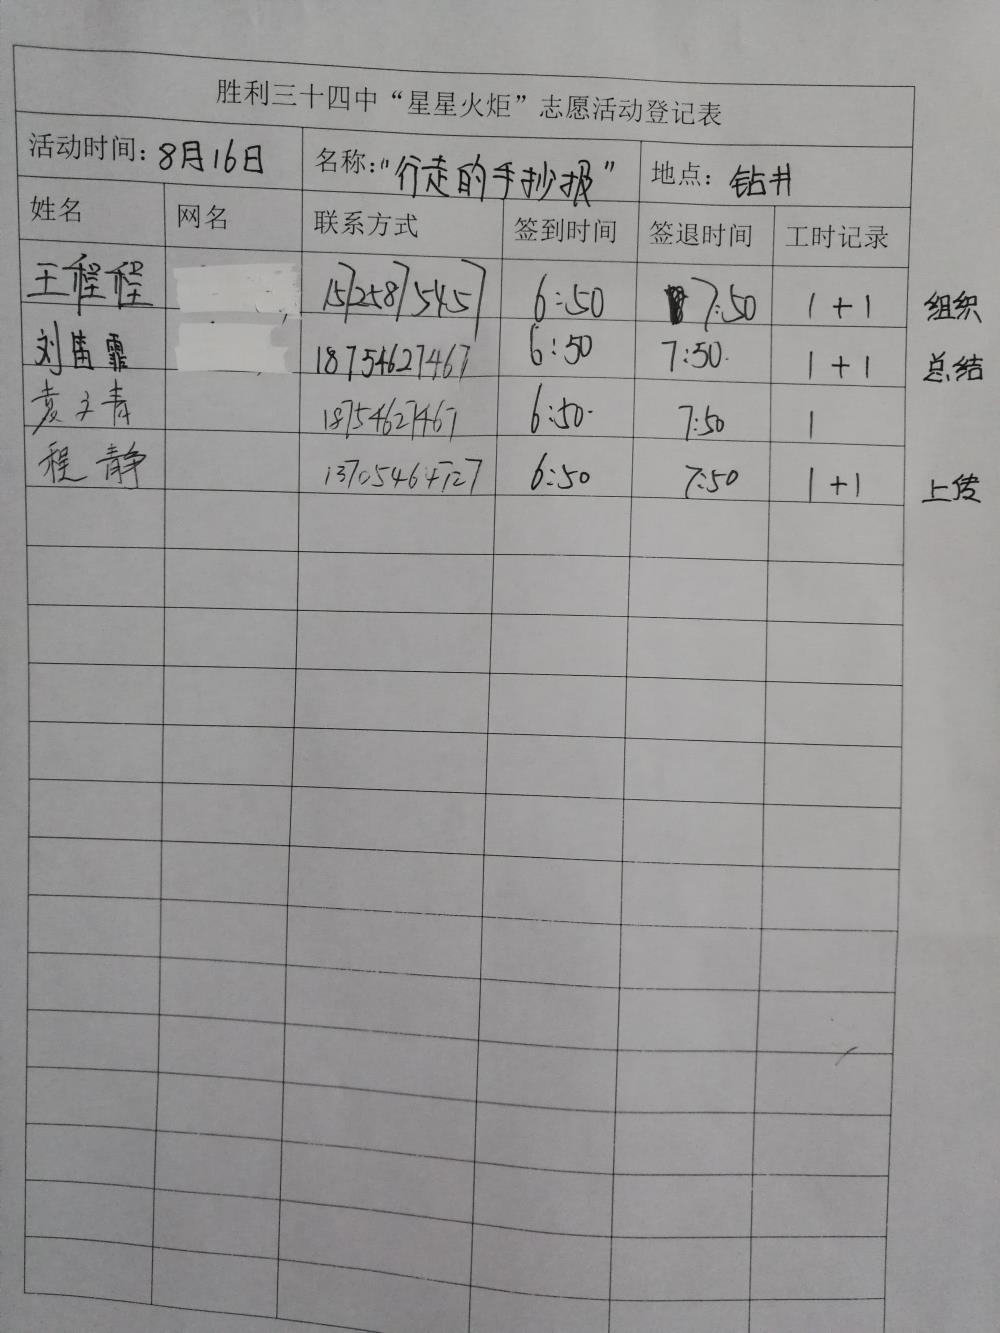 胜利三十四中“星星火炬”志愿活动登记表
活动时间：8月16日 名称：“行走的手抄报” 地点：钻井
姓名 网名 联系方式 签到时间 签退时间 工时记录
王程程 15725875457 6:50 7:50 1+1 组织
刘笛霏 18754627467 6:50 7:50 1+1 总结
袁文青 18754627467 6:50 7:50 1
程静 13705464727 6:50 7:50 1+1 上传